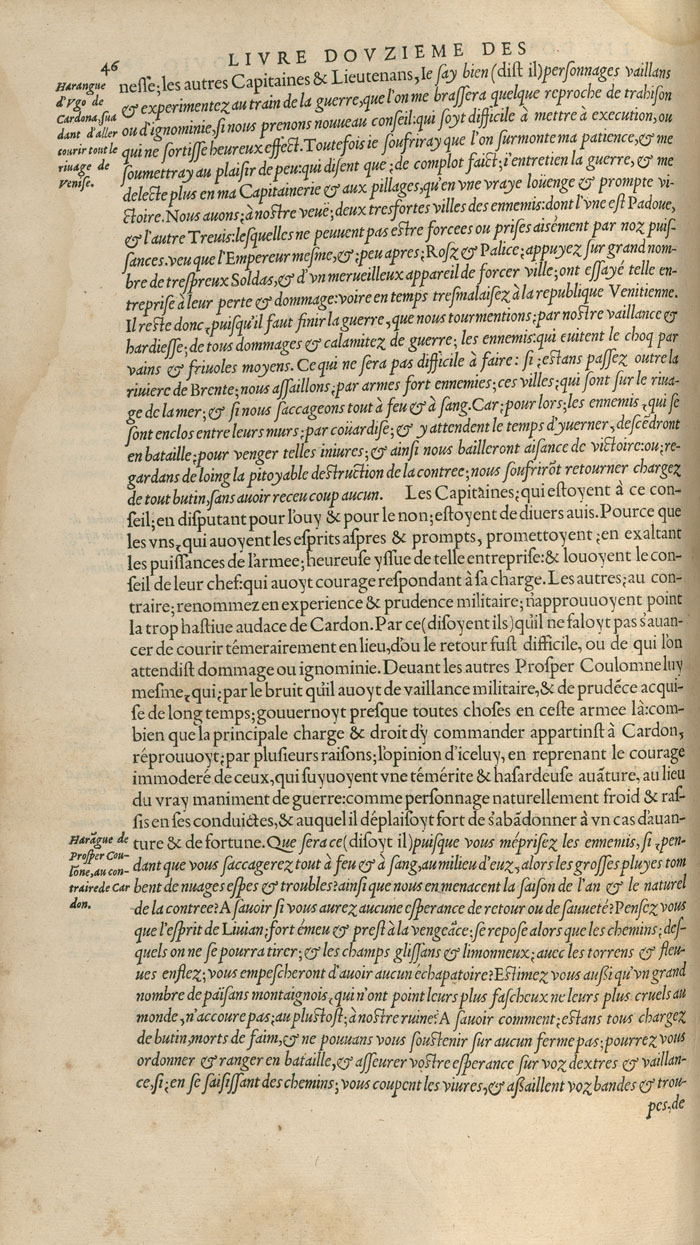 46
LIVRE DOVZIEME DES
Harangue
d'Vgo de
Cardona, sua
dant d'aller
courir tout le
riuage de
Venise.
nesse; les autres Capitaines & Lieutenans, Ie say bien (dist il) personnages vaillans
& experimentez au train de la guerre, que l'on me brassera quelque reproche de trahison
ou d'ignominie, si nous prenons nouueau conseil: qui soyt difficile à mettre à execution, ou
qui ne sortisse heureux effect. Toutefois ie soufriray que l'on surmonte ma patience, & me
soumettray au plaisir de peu: qui disent que; de complot faict; i'entretien la guerre, & me
delecte plus en ma Capitainerie & aux pillages, qu'en vne vraye loüenge & prompte vi-
ctoire. Nous auons; à nostre veuë; deux tresfortes villes des ennemis: dont l'vne est Padoue,
& l'autre Treuis: lesquelles ne peuuent pas estre forcees ou prises aisément par noz puis-
sances. veu que l'Empereur mesme, &; peu apres; Rosz & Palice; appuyez sur grand nom-
bre de trespreux Soldas, & d'vn merueilleux appareil de forcer ville; ont essayé telle en-
treprise à leur perte & dommage: voire en temps tresmalaisez à la republique Venitienne.
Il reste donc, puisqu'il faut finir la guerre, que nous tourmentions: par nostre vaillance &
hardiesse; de tous dommages & calamitez de guerre; les ennemis: qui euitent le choq par
vains & friuoles moyens. Ce qui ne sera pas difficile à faire: si; estans passez outre la
riuiere de Brente; nous assaillons; par armes fort ennemies; ces villes; qui sont sur le riua-
ge de la mer; & si nous saccageons tout à feu & à sang. Car; pour lors; les ennemis, qui se
sont enclos entre leurs murs; par coüardise; & y attendent le temps d'yuerner, descēdront
en bataille; pour venger telles iniures; & ainsi nous bailleront aisance de victoire: ou; re-
gardans de loing la pitoyable destruction de la contree; nous soufrirōt retourner chargez
de tout butin, sans auoir receu coup aucun. Les Capitaines; qui estoyent à ce con-
seil; en disputant pour l'ouy & pour le non; estoyent de diuers auis. Pource que
les vns, qui auoyent les esprits aspres & prompts, promettoyent; en exaltant
les puissances de l'armee; heureuse yssue de telle entreprise: & louoyent le con-
seil de leur chef: qui auoyt courage respondant à sa charge. Les autres; au con-
traire; renommez en experience & prudence militaire; n'approuuoyent point
la trop hastiue audace de Cardon. Par ce (disoyent ils) qu'il ne faloyt pas s'auan-
cer de courir témerairement en lieu, d'ou le retour fust difficile, ou de qui l'on
attendist dommage ou ignominie. Deuant les autres Prosper Coulomne luy
mesme, qui; par le bruit qu'il auoyt de vaillance militaire, & de prudēce acqui-
se de long temps; gouuernoyt presque toutes choses en ceste armee là: com-
bien que la principale charge & droit d'y commander appartinst à Cardon,
réprouuoyt; par plusieurs raisons; l'opinion d'iceluy, en reprenant le courage
immoderé de ceux, qui suyuoyent vne témérite & hasardeuse auāture, au lieu
du vray maniment de guerre: comme personnage naturellement froid & ras-
sis en ses conduictes, & auquel il déplaisoyt fort de s'abādonner à vn cas d'auan-
ture & de fortune. Que sera ce (disoyt il) puisque vous méprisez les ennemis, si; pen-
dant que vous saccagerez tout à feu & à sang, au milieu d'eux, alors les grosses pluyes tom
bent de nuages espes & troubles? ainsi que nous en menacent la saison de l'an & le naturel
de la contree? A sauoir si vous aurez aucune esperance de retour ou de sauueté? Pensez vous
que l'esprit de Liuian; fort émeu & prest à la vengeāce; se repose alors que les chemins; des-
quels on ne se pourra tirer; & les champs glissans & limonneux; auec les torrens & fleu-
ues enflez; vous empescheront d'auoir aucun échapatoire? Estimez vous aussi qu'vn grand
nombre de païsans montaignois, qui n'ont point leurs plus fascheux ne leurs plus cruels au
monde, n'accoure pas; au plustost; à nostre ruine? A sauoir comment; estans tous chargez
de butin, morts de faim, & ne pouuans vous soustenir sur aucun ferme pas; pourrez vous
ordonner & ranger en bataille, & asseurer vostre esperance sur voz dextres & vaillan-
ce, si; en se saisissant des chemins; vous coupent les viures, & assaillent voz bandes & trou-
pes, de
Harāgue de
Prosper Cou-
lōne, au con-
traire de Car
don.